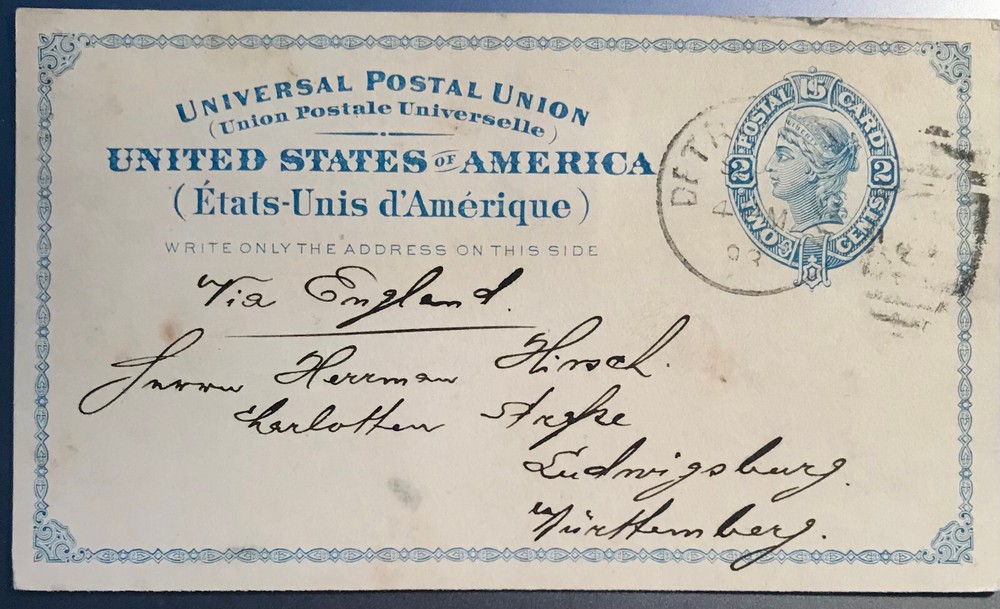 UNIVERSAL POSTAL UNION
(Union Postale Universelle)
UNITED STATES OF AMERICA
(États-Unis d'Amérique)
WRITE ONLY THE ADDRESS ON THIS SIDE
POSTAL CARD
2 2
TWO CENTS
DETR
4 M
93
Via England.
Herrn Herrman Hirsch.
Charlotten Straße
Ludwigsburg.
Württemberg.